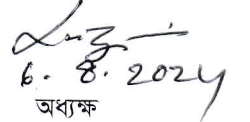 6.8.2024
অধ্যক্ষ